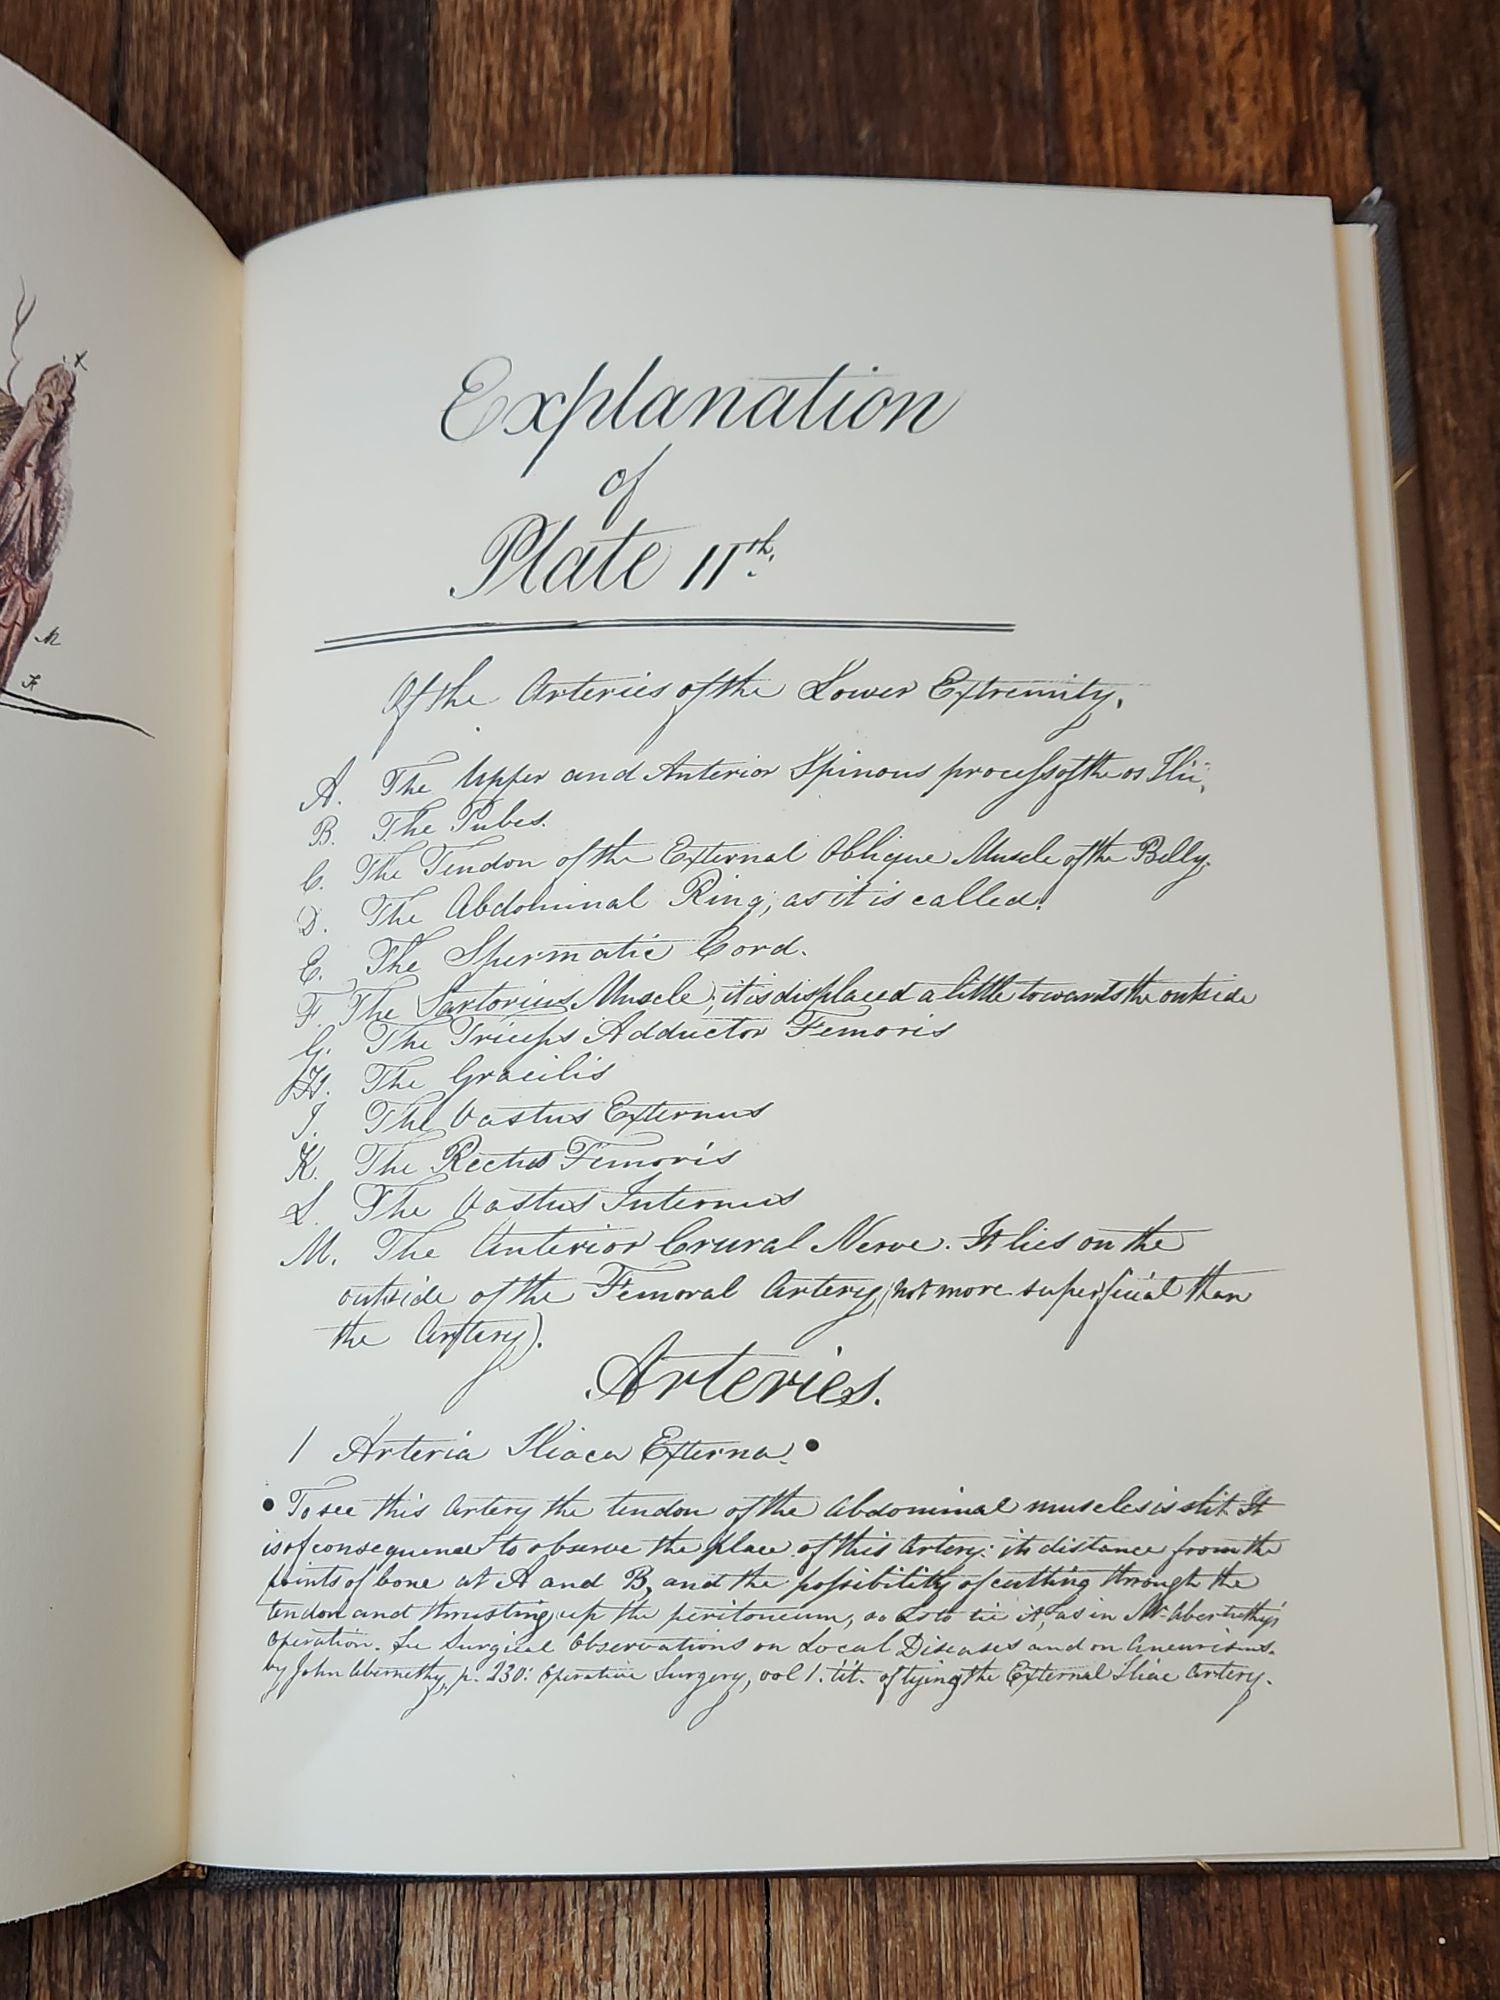 X
M
F
Explanation
of
Plate 11th.
Of the Arteries of the Lower Extremity.
A. The Upper and Anterior Spinous process of the os Ilii.
B. The Pubes.
C. The Tendon of the External Oblique Muscle of the Belly.
D. The Abdominal Ring, as it is called.
E. The Spermatic Cord.
F. The Sartorius Muscle; it is displaced a little towards the outside
G. The Triceps Adductor Femoris
H. The Gracilis
I. The Vastus Externus
K. The Rectus Femoris
L. The Vastus Internus
M. The Anterior Crural Nerve. It lies on the
outside of the Femoral Artery (not more superficial than
the Artery).
Arteries.
1 Arteria Iliaca Externa. •
• To see this Artery the tendon of the abdominal muscles is slit. It
is of consequence to observe the place of this Artery: its distance from the
points of bone at A and B, and the possibility of cutting through the
tendon and thrusting up the peritoneum, so as to tie it, as in Mr. Abernethy's
operation. See Surgical Observations on Local Diseases and on Aneurisms.
by John Abernethy, p. 230: Operative Surgery, vol 1. tit. of tying the External Iliac Artery.